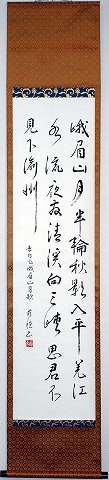 峨眉山月半輪秋影入平羌江
水流夜發清溪向三峽思君不
見下渝州
李白 峨眉山月歌